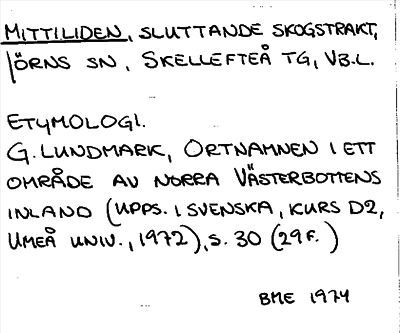 MITTILIDEN, SLUTTANDE SKOGSTRAKT,
JÖRNS SN, SKELLEFTEÅ TG, VB.L.
ETYMOLOGI.
G. LUNDMARK, ORTNAMNEN I ETT
OMRÅDE AV NORRA VÄSTERBOTTENS
INLAND (UPPS. I SVENSKA, KURS D2,
UMEÅ UNIV., 1972), S. 30 (29F.)
BME 1974